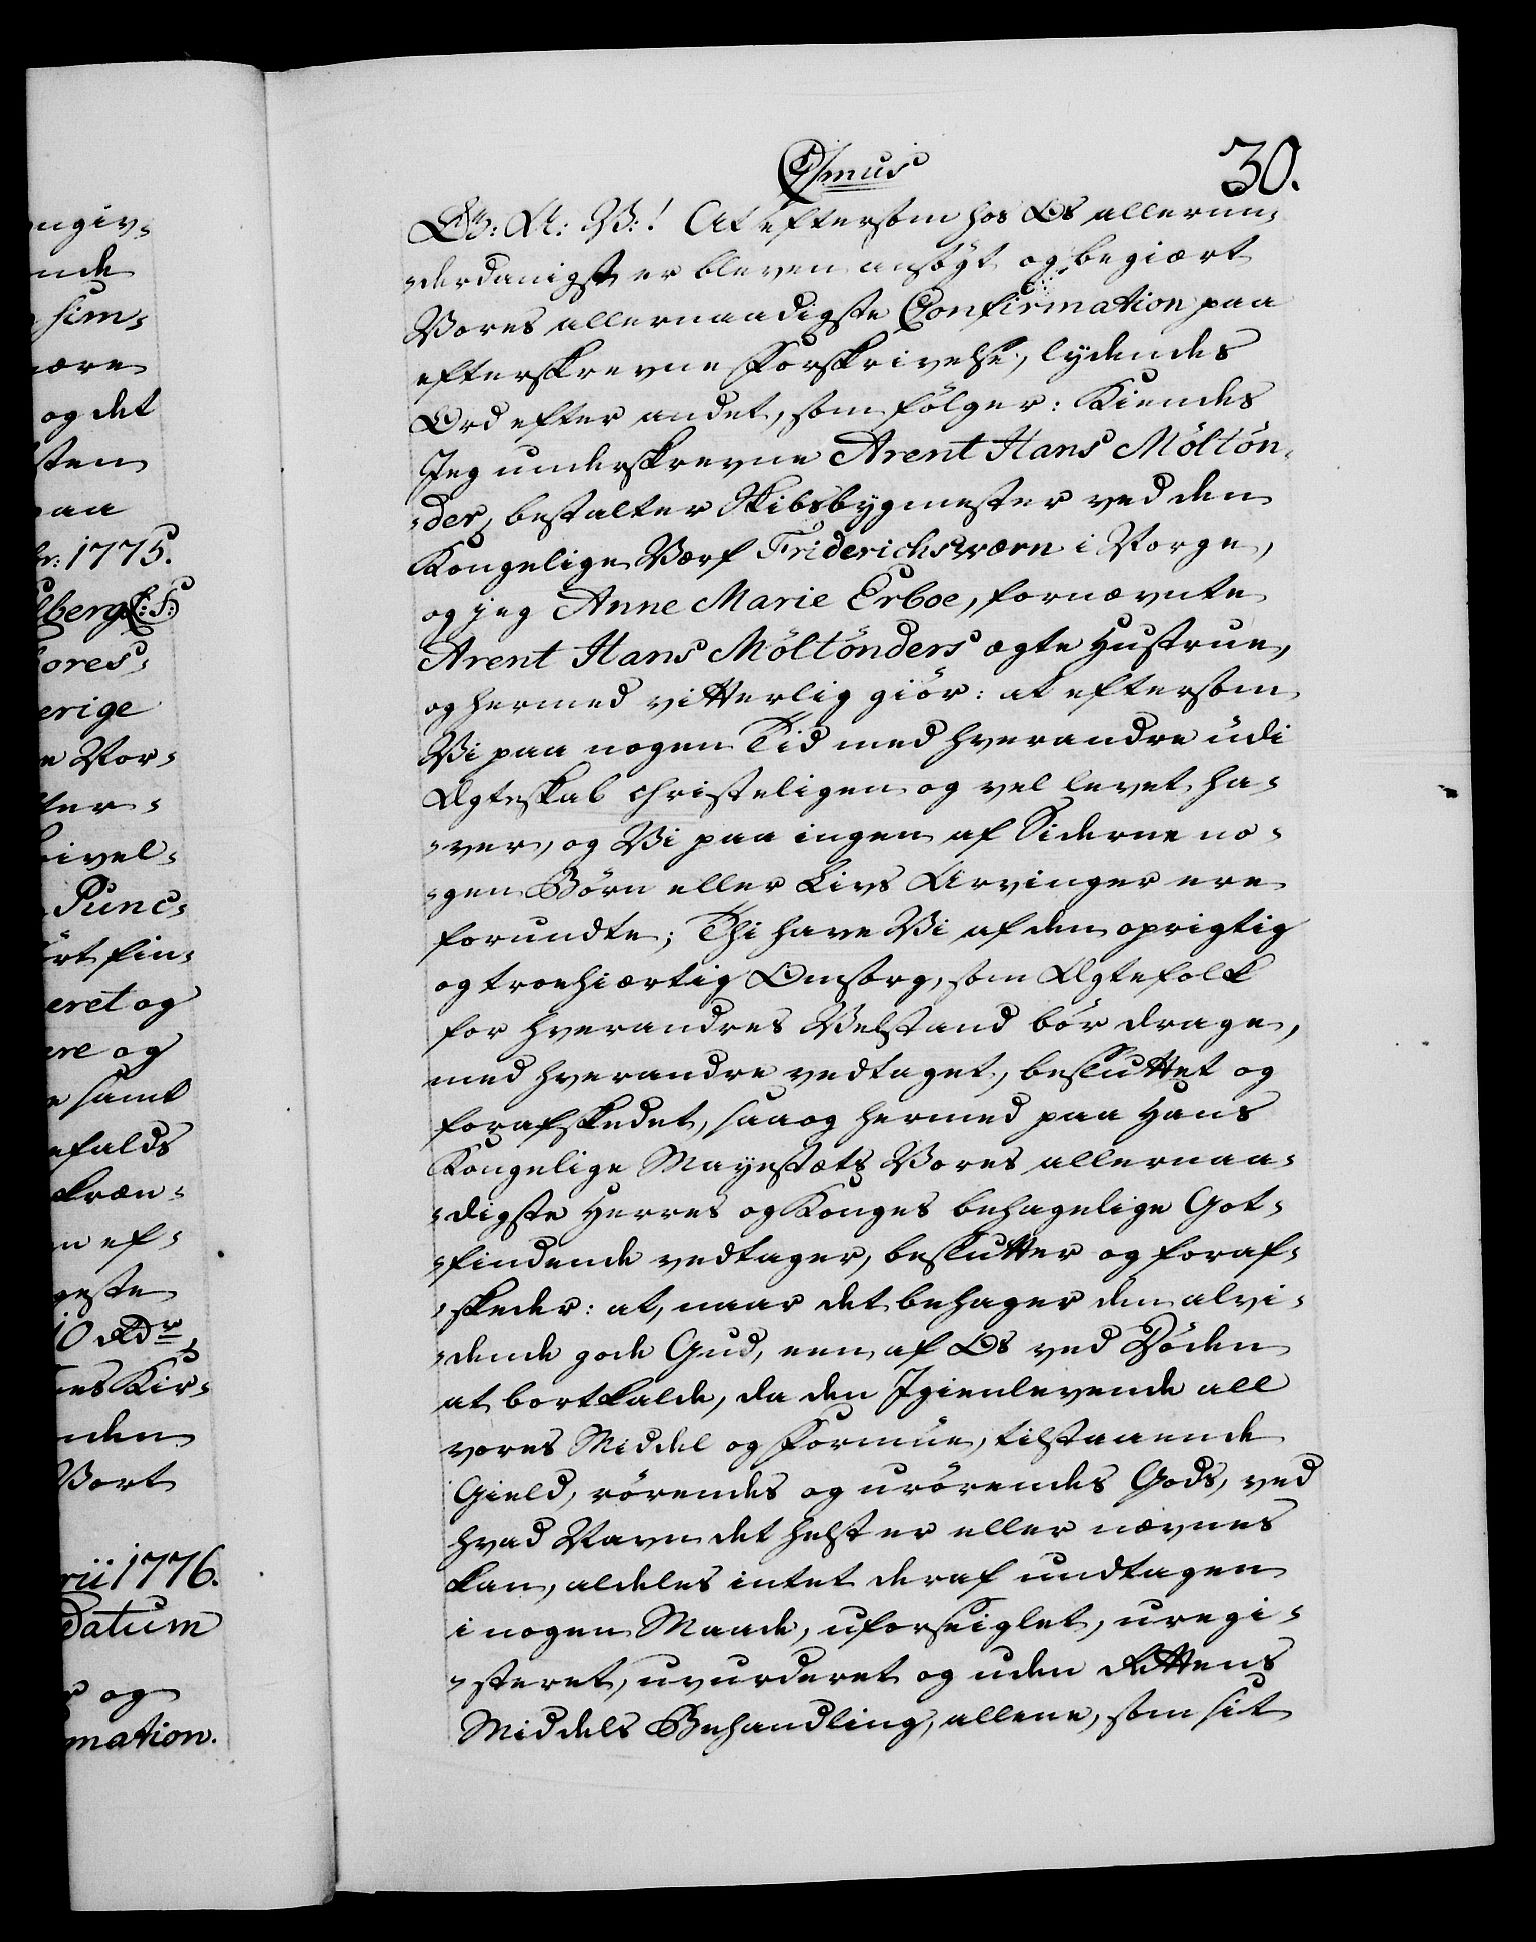 ngiv-
nde
sim-
være
og det
sten
paa
br: 1775.
lberg (L:S:)
ores
erige
e Nor-
ter-
rivel-
Punc-
ört fin-
eret og
ere og
e samt
efalds
kræn-
n ef-
geste
10 Rdr
es Kir-
nden
Vort
rii 1776.
Datum
r og
mation.
Cⁱsmus
30.
G: A: V:! At eftersom hos Os allerun-
-derdanigst er bleven ansögt og begiært
Vores allernaadigste Confirmation paa
efterskrevne Forskrivelse, lydendes
Ord efter andet, som fölger: Kiendes
Jeg underskrevne Arent Hans Möltön-
-der, bestalter Skibsbygmester ved den
Kongelige Værf Friderichsværn i Norge,
og jeg Anne Marie Erboe, fornævnte
Arent Hans Möltönders ægte Hustrue,
og hermed vitterlig giör: at eftersom
Vi paa nogen Tid med hverandre udi
Ægteskab christeligen og vel levet ha-
-ver, og Vi paa ingen af Siderne no-
-gen Börn eller Livs Arvinger ere
forundte; Thi have Vi af den oprigtig
og troehiærtig Omsorg, som Ægtefolk
for hverandres Velstand bör drage,
med hverandre vedtaget, besluttet og
forafskedet, saa og hermed paa Hans
Kongelige Mayestæts Vores allernaa-
-digste Herres og Konges behagelige Got-
-findende vedtager, beslutter og foraf-
-skeder: at, naar det behager den alvi-
-dende gode Gud, een af Os ved Döden
at bortkalde, da den Igienlevende all
vores Middel og Formue, tilstaaende
Gield, rörendes og urörendes Gods, ved
hvad Navn det helst er eller nævnes
kan, aldeles intet deraf undtagen
i nogen Maade, uforseiglet, uregi-
-steret, uvurderet og uden Rettens
Middels Behandling, allene, som sit